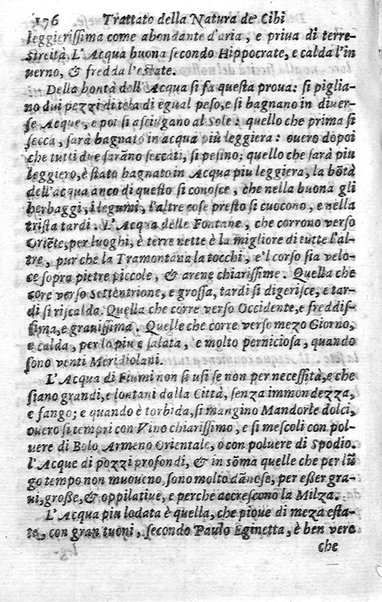 176 Trattato della Natura de Cibi
leggierissima come abendante d'aria, e priua di terre-
streità. L'Acqua buona secondo Hippocrate, e calda l'in
uerno, & fredda l'estate.
Della bontà dell'Acqua si fa questa proua: si piglia-
no dui pezzi di tela di egual peso, e si bagnano in diuer-
se Acque, e poi si asciugano al Sole: quello che prima si
secca, sarà bagnato in acqua più leggiera: ouero dopoi
che tutti due sarāno seccati, si pesino; quello che sarà più
leggiero, è stato bagnato in Acqua piu leggiera, la bōtà
dell'acqua anco di questo si conosce, che nella buona gli
herbaggi, i legumi, l'altre cose presto si cuocono, e nella
trista tardi. L'Acqua delle Fontane, che corrono verso
Oriēte, per luoghi, è terre nette è la migliore di tutte l'al-
tre, pur che la Tramontana la tocchi, e'l corso sia velo-
ce sopra pietre piccole, & arene chiarissime. Quella che
core verso Settentrione, e grossa, tardi si digerisce, e tar-
di si riscalda. Quella che corre verso Occidente, e freddis-
sima, e grauissima. Quelle che corre verso mezo Giorno,
e calda, per lo piu e salata, e molto perniciosa, quando
sono venti Meridiolani.
L'Acqua di Fiumi non si usi se non per necessità, e che
siano grandi, e lontani dalla Città, senza immondezza,
e fango; e quando è torbida, si mangino Mandorle dolci,
ouero si tempri con Vino chiarissimo, e si mescoli con pol-
uere di Bolo Armeno Orientale, ò con poluere di Spodio.
l'Acque di pozzi profondi, & in sōma quelle che per lū
go tempo non muoueno, sono molto dānese, per esser gra-
ui, große, & oppilatiue, e perche accrescono la Milza.
L'Acqua piu lodata è quella, che pioue di meza esta-
te, con gran tuoni, secondo Paulo Eginetta, è ben vero
che